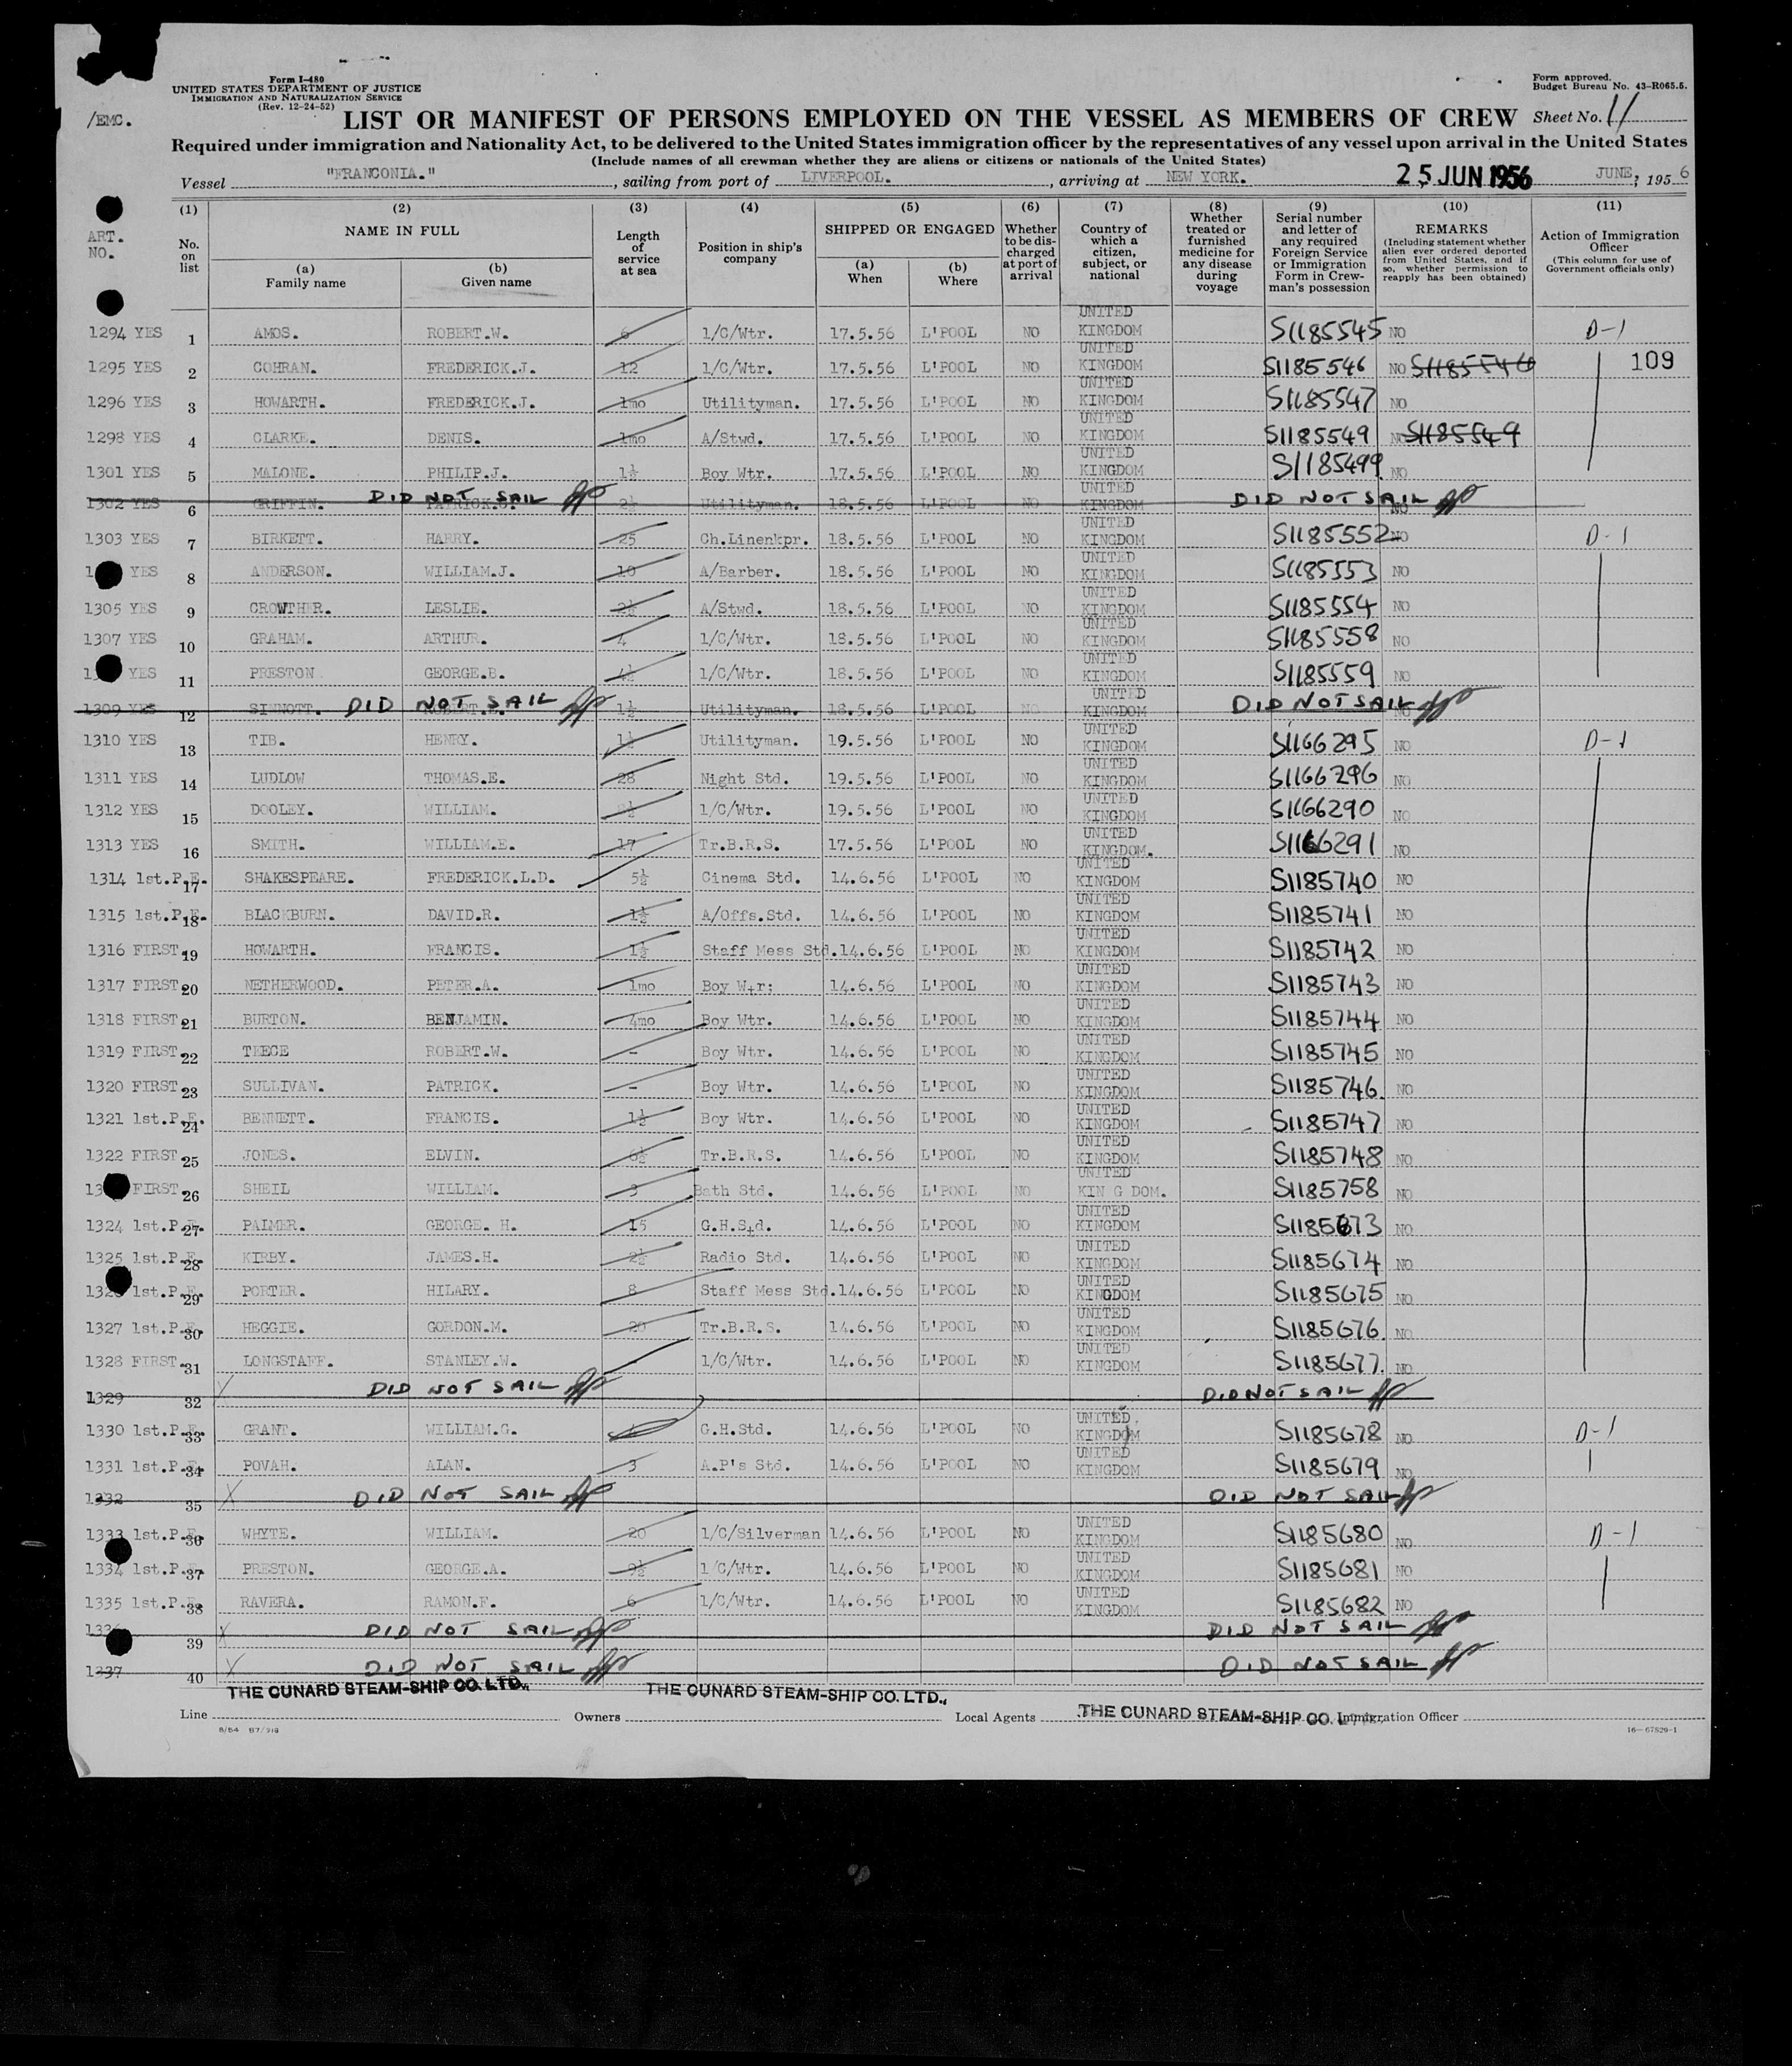 Form I-480
UNITED STATES DEPARTMENT OF JUSTICE
IMMIGRATION AND NATURALIZATION SERVICE
(Rev. 12-24-52)
Form approved.
Budget Bureau No. 43-R065.5.
/EMC.
LIST OR MANIFEST OF PERSONS EMPLOYED ON THE VESSEL AS MEMBERS OF CREW Sheet No. 11
Required under immigration and Nationality Act, to be delivered to the United States immigration officer by the representatives of any vessel upon arrival in the United States
(Include names of all crewman whether they are aliens or citizens or nationals of the United States)
Vessel "FRANCONIA." , sailing from port of LIVERPOOL. , arriving at NEW YORK. 25 JUN 1956 JUNE, 1956
ART. NO.
(1) No. on list
(2) NAME IN FULL (a) Family name (b) Given name
(3) Length of service at sea
(4) Position in ship's company
(5) SHIPPED OR ENGAGED (a) When (b) Where
(6) Whether to be discharged at port of arrival
(7) Country of which a citizen, subject, or national
(8) Whether treated or furnished medicine for any disease during voyage
(9) Serial number and letter of any required Foreign Service or Immigration Form in Crewman's possession
(10) REMARKS (Including statement whether alien ever ordered deported from United States, and if so, whether permission to reapply has been obtained)
(11) Action of Immigration Officer (This column for use of Government officials only)
1294 YES 1 AMOS. ROBERT.W. 6 1/C/Wtr. 17.5.56 L'POOL NO UNITED KINGDOM S1185545 NO D-1
1295 YES 2 COHRAN. FREDERICK.J. 12 1/C/Wtr. 17.5.56 L'POOL NO UNITED KINGDOM S1185546 NO S1185546 109
1296 YES 3 HOWARTH. FREDERICK.J. 1mo Utilityman. 17.5.56 L'POOL NO UNITED KINGDOM S1185547 NO
1298 YES 4 CLARKE. DENIS. 1mo A/Stwd. 17.5.56 L'POOL NO UNITED KINGDOM S1185549 NO S1185549
1301 YES 5 MALONE. PHILIP.J. 1½ Boy Wtr. 17.5.56 L'POOL NO UNITED KINGDOM S1185499 NO
1302 YES 6 GRIFFIN. DID NOT SAIL 2½ Utilityman. 18.5.56 L'POOL NO UNITED KINGDOM DID NOT SAIL NO
1303 YES 7 BIRKETT. HARRY. 25 Ch.Linenkpr. 18.5.56 L'POOL NO UNITED KINGDOM S1185552 NO D-1
YES 8 ANDERSON. WILLIAM.J. 10 A/Barber. 18.5.56 L'POOL NO UNITED KINGDOM S1185553 NO
1305 YES 9 CROWTHER. LESLIE. 2½ A/Stwd. 18.5.56 L'POOL NO UNITED KINGDOM S1185554 NO
1307 YES 10 GRAHAM. ARTHUR. 4 1/C/Wtr. 18.5.56 L'POOL NO UNITED KINGDOM S1185558 NO
YES 11 PRESTON GEORGE.B. 4½ 1/C/Wtr. 18.5.56 L'POOL NO UNITED KINGDOM S1185559 NO
1309 YES 12 SINNOTT. DID NOT SAIL 1½ Utilityman. 18.5.56 L'POOL NO UNITED KINGDOM DID NOT SAIL NO
1310 YES 13 TIB. HENRY. 1½ Utilityman. 19.5.56 L'POOL NO UNITED KINGDOM S1166295 NO D-1
1311 YES 14 LUDLOW THOMAS.E. 28 Night Std. 19.5.56 L'POOL NO UNITED KINGDOM S1166296 NO
1312 YES 15 DOOLEY. WILLIAM. 1/C/Wtr. 19.5.56 L'POOL NO UNITED KINGDOM S1166290 NO
1313 YES 16 SMITH. WILLIAM.E. 17 Tr.B.R.S. 17.5.56 L'POOL NO UNITED KINGDOM. S1166291 NO
1314 1st.P.E. 17 SHAKESPEARE. FREDERICK.L.D. 5½ Cinema Std. 14.6.56 L'POOL NO UNITED KINGDOM S1185740 NO
1315 1st.P.E. 18 BLACKBURN. DAVID.R. 1½ A/Offs.Std. 14.6.56 L'POOL NO UNITED KINGDOM S1185741 NO
1316 FIRST. 19 HOWARTH. FRANCIS. 1½ Staff Mess Std. 14.6.56 L'POOL NO UNITED KINGDOM S1185742 NO
1317 FIRST 20 NETHERWOOD. PETER.A. 1mo Boy Wtr: 14.6.56 L'POOL NO UNITED KINGDOM S1185743 NO
1318 FIRST 21 BURTON. BENJAMIN. 4mo Boy Wtr. 14.6.56 L'POOL NO UNITED KINGDOM S1185744 NO
1319 FIRST 22 TEECE ROBERT.W. - Boy Wtr. 14.6.56 L'POOL NO UNITED KINGDOM S1185745 NO
1320 FIRST 23 SULLIVAN. PATRICK. - Boy Wtr. 14.6.56 L'POOL NO UNITED KINGDOM S1185746 NO
1321 1st.P.E. 24 BENNETT. FRANCIS. 1½ Boy Wtr. 14.6.56 L'POOL NO UNITED KINGDOM S1185747 NO
1322 FIRST 25 JONES. ELVIN. 6½ Tr.B.R.S. 14.6.56 L'POOL NO UNITED KINGDOM S1185748 NO
FIRST. 26 SHEIL WILLIAM. 3 Bath Std. 14.6.56 L'POOL NO UNITED KIN G DOM. S1185758 NO
1324 1st.P.E. 27 PALMER. GEORGE. H. 15 G.H.Std. 14.6.56 L'POOL NO UNITED KINGDOM S1185673 NO
1325 1st.P.E. 28 KIRBY. JAMES.H. 2½ Radio Std. 14.6.56 L'POOL NO UNITED KINGDOM S1185674 NO
1st.P.E. 29 PORTER. HILARY. 8 Staff Mess Std. 14.6.56 L'POOL NO UNITED KINGDOM S1185675 NO
1327 1st.P.E. 30 HEGGIE. GORDON.M. 20 Tr.B.R.S. 14.6.56 L'POOL NO UNITED KINGDOM S1185676 NO
1328 FIRST. 31 LONGSTAFF. STANLEY.W. - 1/C/Wtr. 14.6.56 L'POOL NO UNITED KINGDOM S1185677 NO
1329 32 X DID NOT SAIL DID NOT SAIL
1330 1st.P.E. 33 GRANT. WILLIAM.G. G.H.Std. 14.6.56 L'POOL NO UNITED KINGDOM S1185678 NO D-1
1331 1st.P.E. 34 POVAH. ALAN. 3 A.P's Std. 14.6.56 L'POOL NO UNITED KINGDOM S1185679 NO
1332 35 X DID NOT SAIL DID NOT SAIL
1333 1st.P.E. 36 WHYTE. WILLIAM. 20 1/C/Silverman 14.6.56 L'POOL NO UNITED KINGDOM S1185680 NO D-1
1334 1st.P.E. 37 PRESTON. GEORGE.A. 9½ 1/C/Wtr. 14.6.56 L'POOL NO UNITED KINGDOM S1185681 NO
1335 1st.P.E. 38 RAVERA. RAMON.F. 6 1/C/Wtr. 14.6.56 L'POOL NO UNITED KINGDOM S1185682 NO
39 X DID NOT SAIL DID NOT SAIL
1337 40 X DID NOT SAIL DID NOT SAIL
THE CUNARD STEAM-SHIP CO. LTD., THE CUNARD STEAM-SHIP CO. LTD., THE CUNARD STEAM-SHIP CO.
Line Owners Local Agents Immigration Officer
8/54 B7/918
16-67829-1